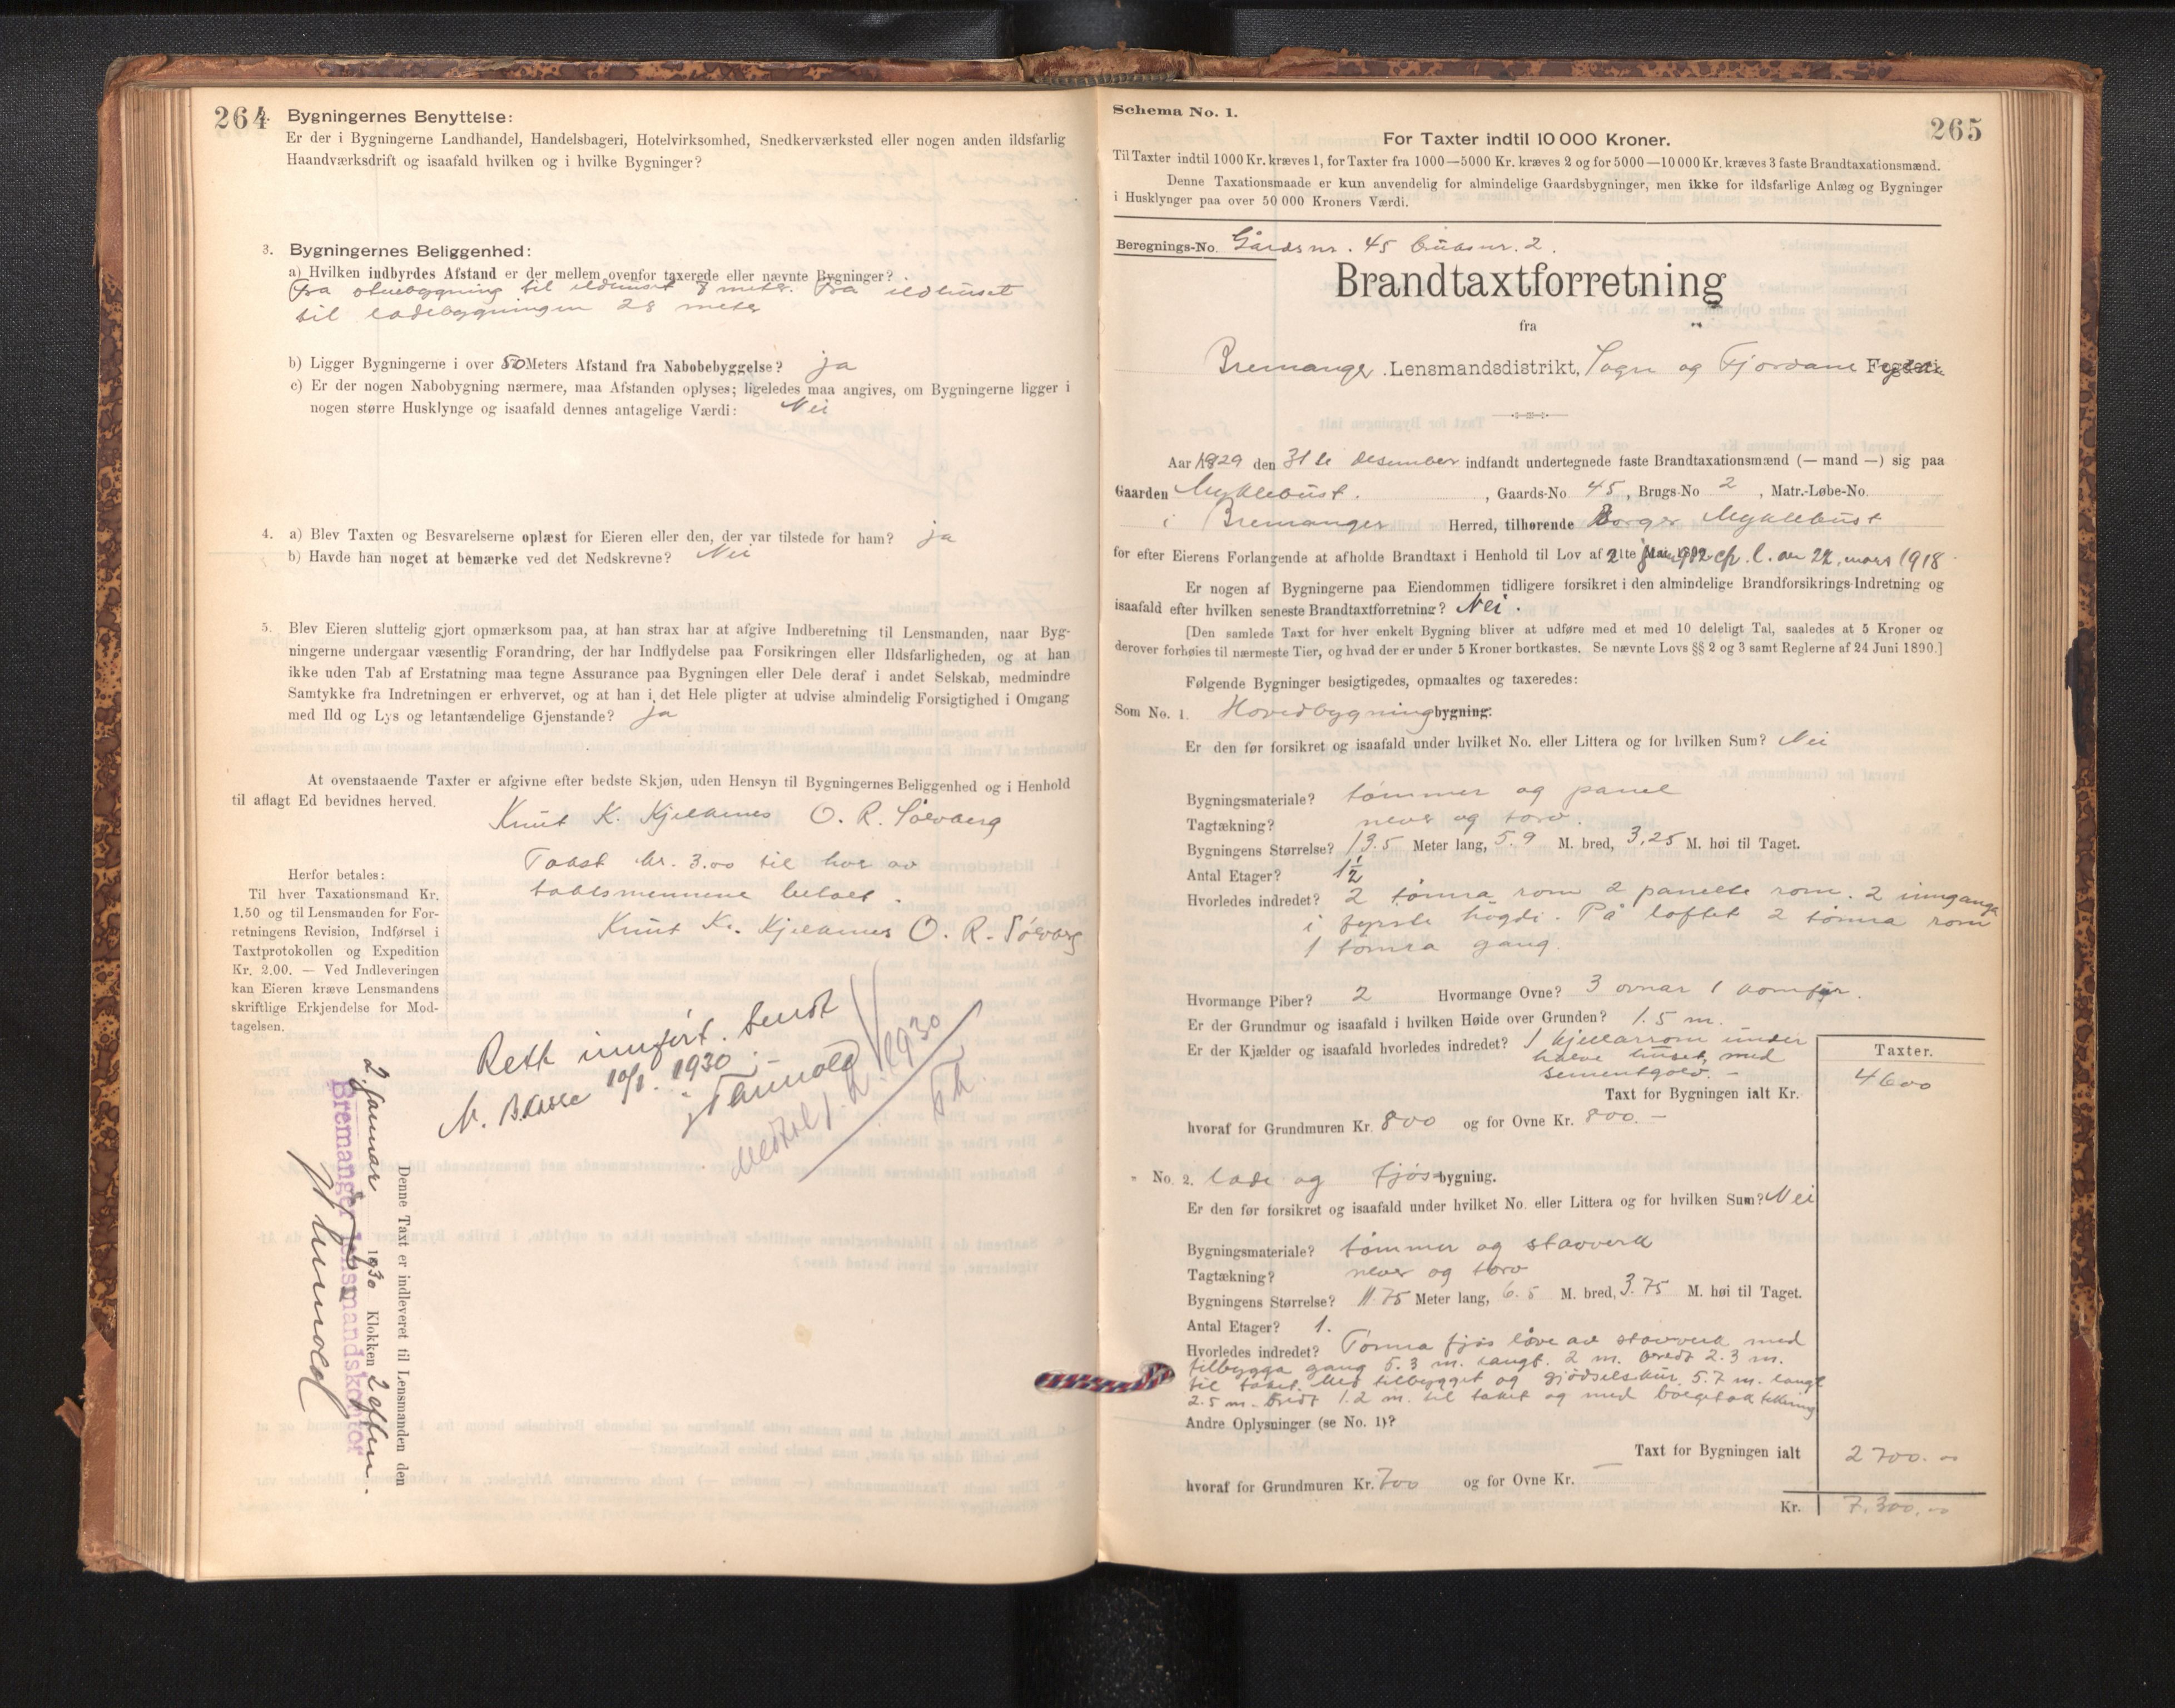 264
2. Bygningernes Benyttelse:
Er der i Bygningerne Landhandel, Handelsbageri, Hotelvirksomhed, Snedkerværksted eller nogen anden ildsfarlig
Haandværksdrift og isaafald hvilken og i hvilke Bygninger?
3. Bygningernes Beliggenhed:
a) Hvilken indbyrdes Afstand er der mellem ovenfor taxerede eller nævnte Bygninger?
Fra stuebygning til ildhuset 8 meter. Fra ildhuset
til ladebygningen 28 meter
b) Ligger Bygningerne i over 50 Meters Afstand fra Nabobebyggelse? ja
c) Er der nogen Nabobygning nærmere, maa Afstanden oplyses; ligeledes maa angives, om Bygningerne ligger i
nogen større Husklynge og isaafald dennes antagelige Værdi: Nei
4. a) Blev Taxten og Besvarelserne oplæst for Eieren eller den, der var tilstede for ham? ja
b) Havde han noget at bemærke ved det Nedskrevne? Nei
5. Blev Eieren sluttelig gjort opmærksom paa, at han strax har at afgive Indberetning til Lensmanden, naar Byg-
ningerne undergaar væsentlig Forandring, der har Indflydelse paa Forsikringen eller Ildsfarligheden, og at han
ikke uden Tab af Erstatning maa tegne Assurance paa Bygningen eller Dele deraf i andet Selskab, medmindre
Samtykke fra Indretningen er erhvervet, og at han i det Hele pligter at udvise almindelig Forsigtighed i Omgang
med Ild og Lys og letantændelige Gjenstande? ja
At ovenstaaende Taxter er afgivne efter bedste Skjøn, uden Hensyn til Bygningernes Beliggenhed og i Henhold
til aflagt Ed bevidnes herved.
Knut K. Kjelkenes O. R. Sølvberg
Takst kr. 3.00 til hver av
takstmennene betalt.
Knut K. Kjelkenes O. R. Sølvberg
Herfor betales:
Til hver Taxationsmand Kr.
1.50 og til Lensmanden for For-
retningens Revision, Indførsel i
Taxtprotokollen og Expedition
Kr. 2.00. — Ved Indleveringen
kan Eieren kræve Lensmandens
skriftlige Erkjendelse for Mod-
tagelsen.
Rett innført. Sendt
N. B.kasse 10/1. 1930.
Denne Taxt er indleveret til Lensmanden den
2. januar 1930 Klokken 2 efterm.
Bremanger lensmandskontor
265
Schema No. 1.
For Taxter indtil 10 000 Kroner.
Til Taxter indtil 1000 Kr. kræves 1, for Taxter fra 1000—5000 Kr. kræves 2 og for 5000—10 000 Kr. kræves 3 faste Brandtaxationsmænd.
Denne Taxationsmaade er kun anvendelig for almindelige Gaardsbygninger, men ikke for ildsfarlige Anlæg og Bygninger
i Husklynger paa over 50 000 Kroners Værdi.
Beregnings-No. Gårdsnr. 45 bruksnr. 2.
Brandtaxtforretning
fra
Bremanger Lensmandsdistrikt, Sogn og Fjordane Fogderi
Aar 1929 den 31te desember indfandt undertegnede faste Brandtaxationsmænd (— mand —) sig paa
Gaarden Myklebust. , Gaards-No 45, Brugs-No 2, Matr.-Løbe-No.
i Bremanger Herred, tilhørende Borger Myklebust
for efter Eierens Forlangende at afholde Brandtaxt i Henhold til Lov af
Er nogen af Bygningerne paa Eiendommen tidligere forsikret i den almindelige Brandforsikrings-Indretning og
isaafald efter hvilken seneste Brandtaxtforretning? Nei.
[Den samlede Taxt for hver enkelt Bygning bliver at udføre med et med 10 deleligt Tal, saaledes at 5 Kroner og
derover forhøies til nærmeste Tier, og hvad der er under 5 Kroner bortkastes. Se nævnte Lovs §§ 2 og 3 samt Reglerne af 24 Juni 1890.]
Følgende Bygninger besigtigedes, opmaaltes og taxeredes:
Som No. 1. Hovedbygning bygning.
Er den før forsikret og isaafald under hvilket No. eller Littera og for hvilken Sum? Nei
Bygningsmateriale? tømmer og panel
Tagtækning? never og torv.
Bygningens Størrelse? 13.5 Meter lang, 5.9 M. bred, 3,25 M. høi til Taget.
Antal Etager? 1½
Hvorledes indredet? 2 tømra rom 2 panelte rom. 2 innganga
i fyrste høgdi. På loftet 2 tømra rom
1 tømra gang.
Hvormange Piber? 2 Hvormange Ovne? 3 ovnar 1 komfyr.
Er der Grundmur og isaafald i hvilken Høide over Grunden? 1.5 m.
Er der Kjælder og isaafald hvorledes indredet? 1 kjellarrom under
halve huset, med
sementgolv. —
Taxter.
Taxt for Bygningen ialt Kr. 4600
hvoraf for Grundmuren Kr. 800 og for Ovne Kr. 800.—
" No. 2. Lade og Fjøsbygning.
Er den før forsikret og isaafald under hvilket No. eller Littera og for hvilken Sum? Nei
Bygningsmateriale? tømmer og stavverk
Tagtækning? never og torv
Bygningens Størrelse? 11.75 Meter lang, 6.5 M. bred, 3.75 M. høi til Taget.
Antal Etager? 1.
Hvorledes indredet? Tømra fjøs løve av stavverk med
tilbygga gang 5.3 m. langt. 2 m. bredt 2.3 m.
til taket. Med tilbygget og gjødselskur 5.7 m. langt
2.5 m. bredt 1.2 m. til taket og med bølgetak tekking
Andre Oplysninger (se No. 1)?
Taxt for Bygningen ialt 2700.00
hvoraf for Grundmuren Kr. 700 og for Ovne Kr. —
Kr. 7.300.00